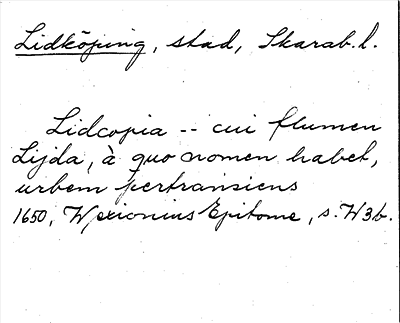 Lidköping, stad, Skarab.l.
Lidcopia -- cui flumen
Lijda, à quo nomen habet,
urbem pertransiens
1650, Wexionius Epitome, s. W3b.